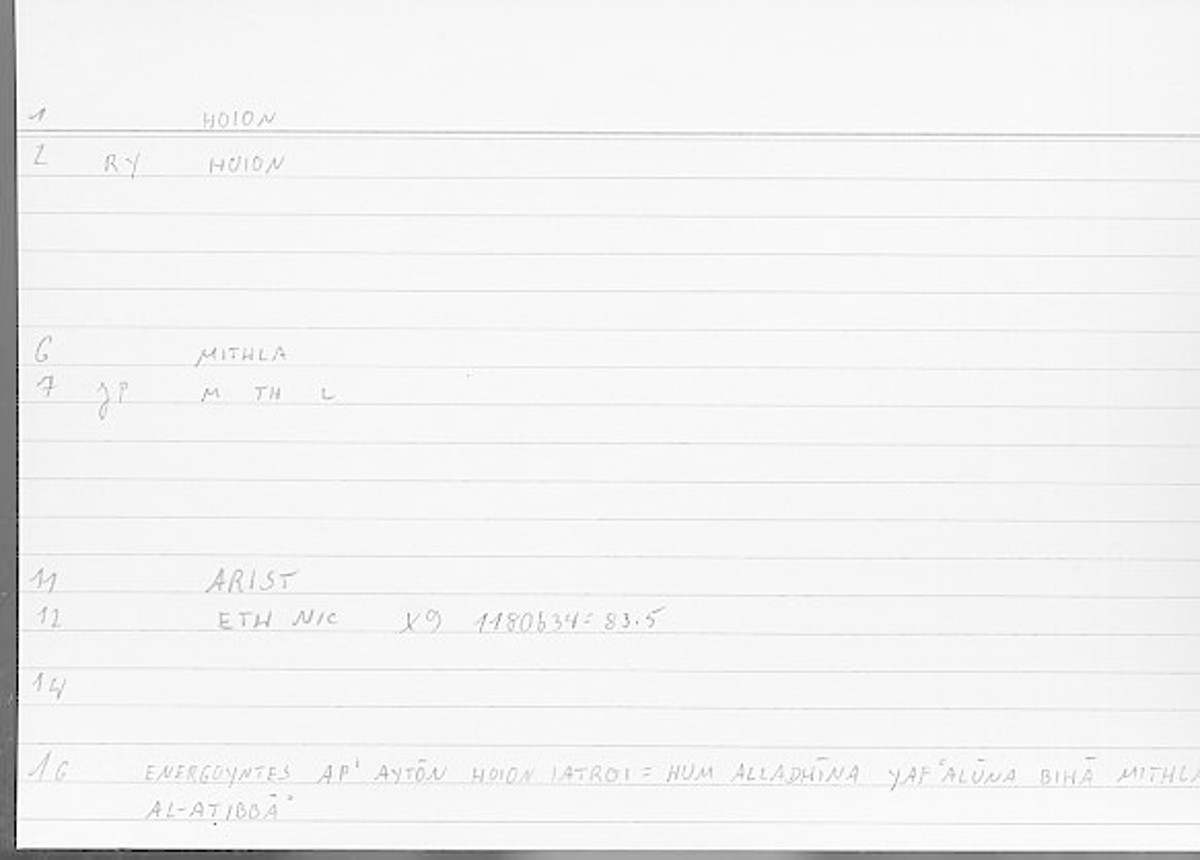 1 HOION
2 RY HOION
6 MITHLA
7 JP M TH L
11 ARIST
12 ETH NIC X9 1180b34=83.5
14
16 ENERGOYNTES AP' AYTŌN HOION IATROI = HUM ALLADHĪNA YAFʿALŪNA BIHĀ MITHLA
AL-AṬIBBĀʾ